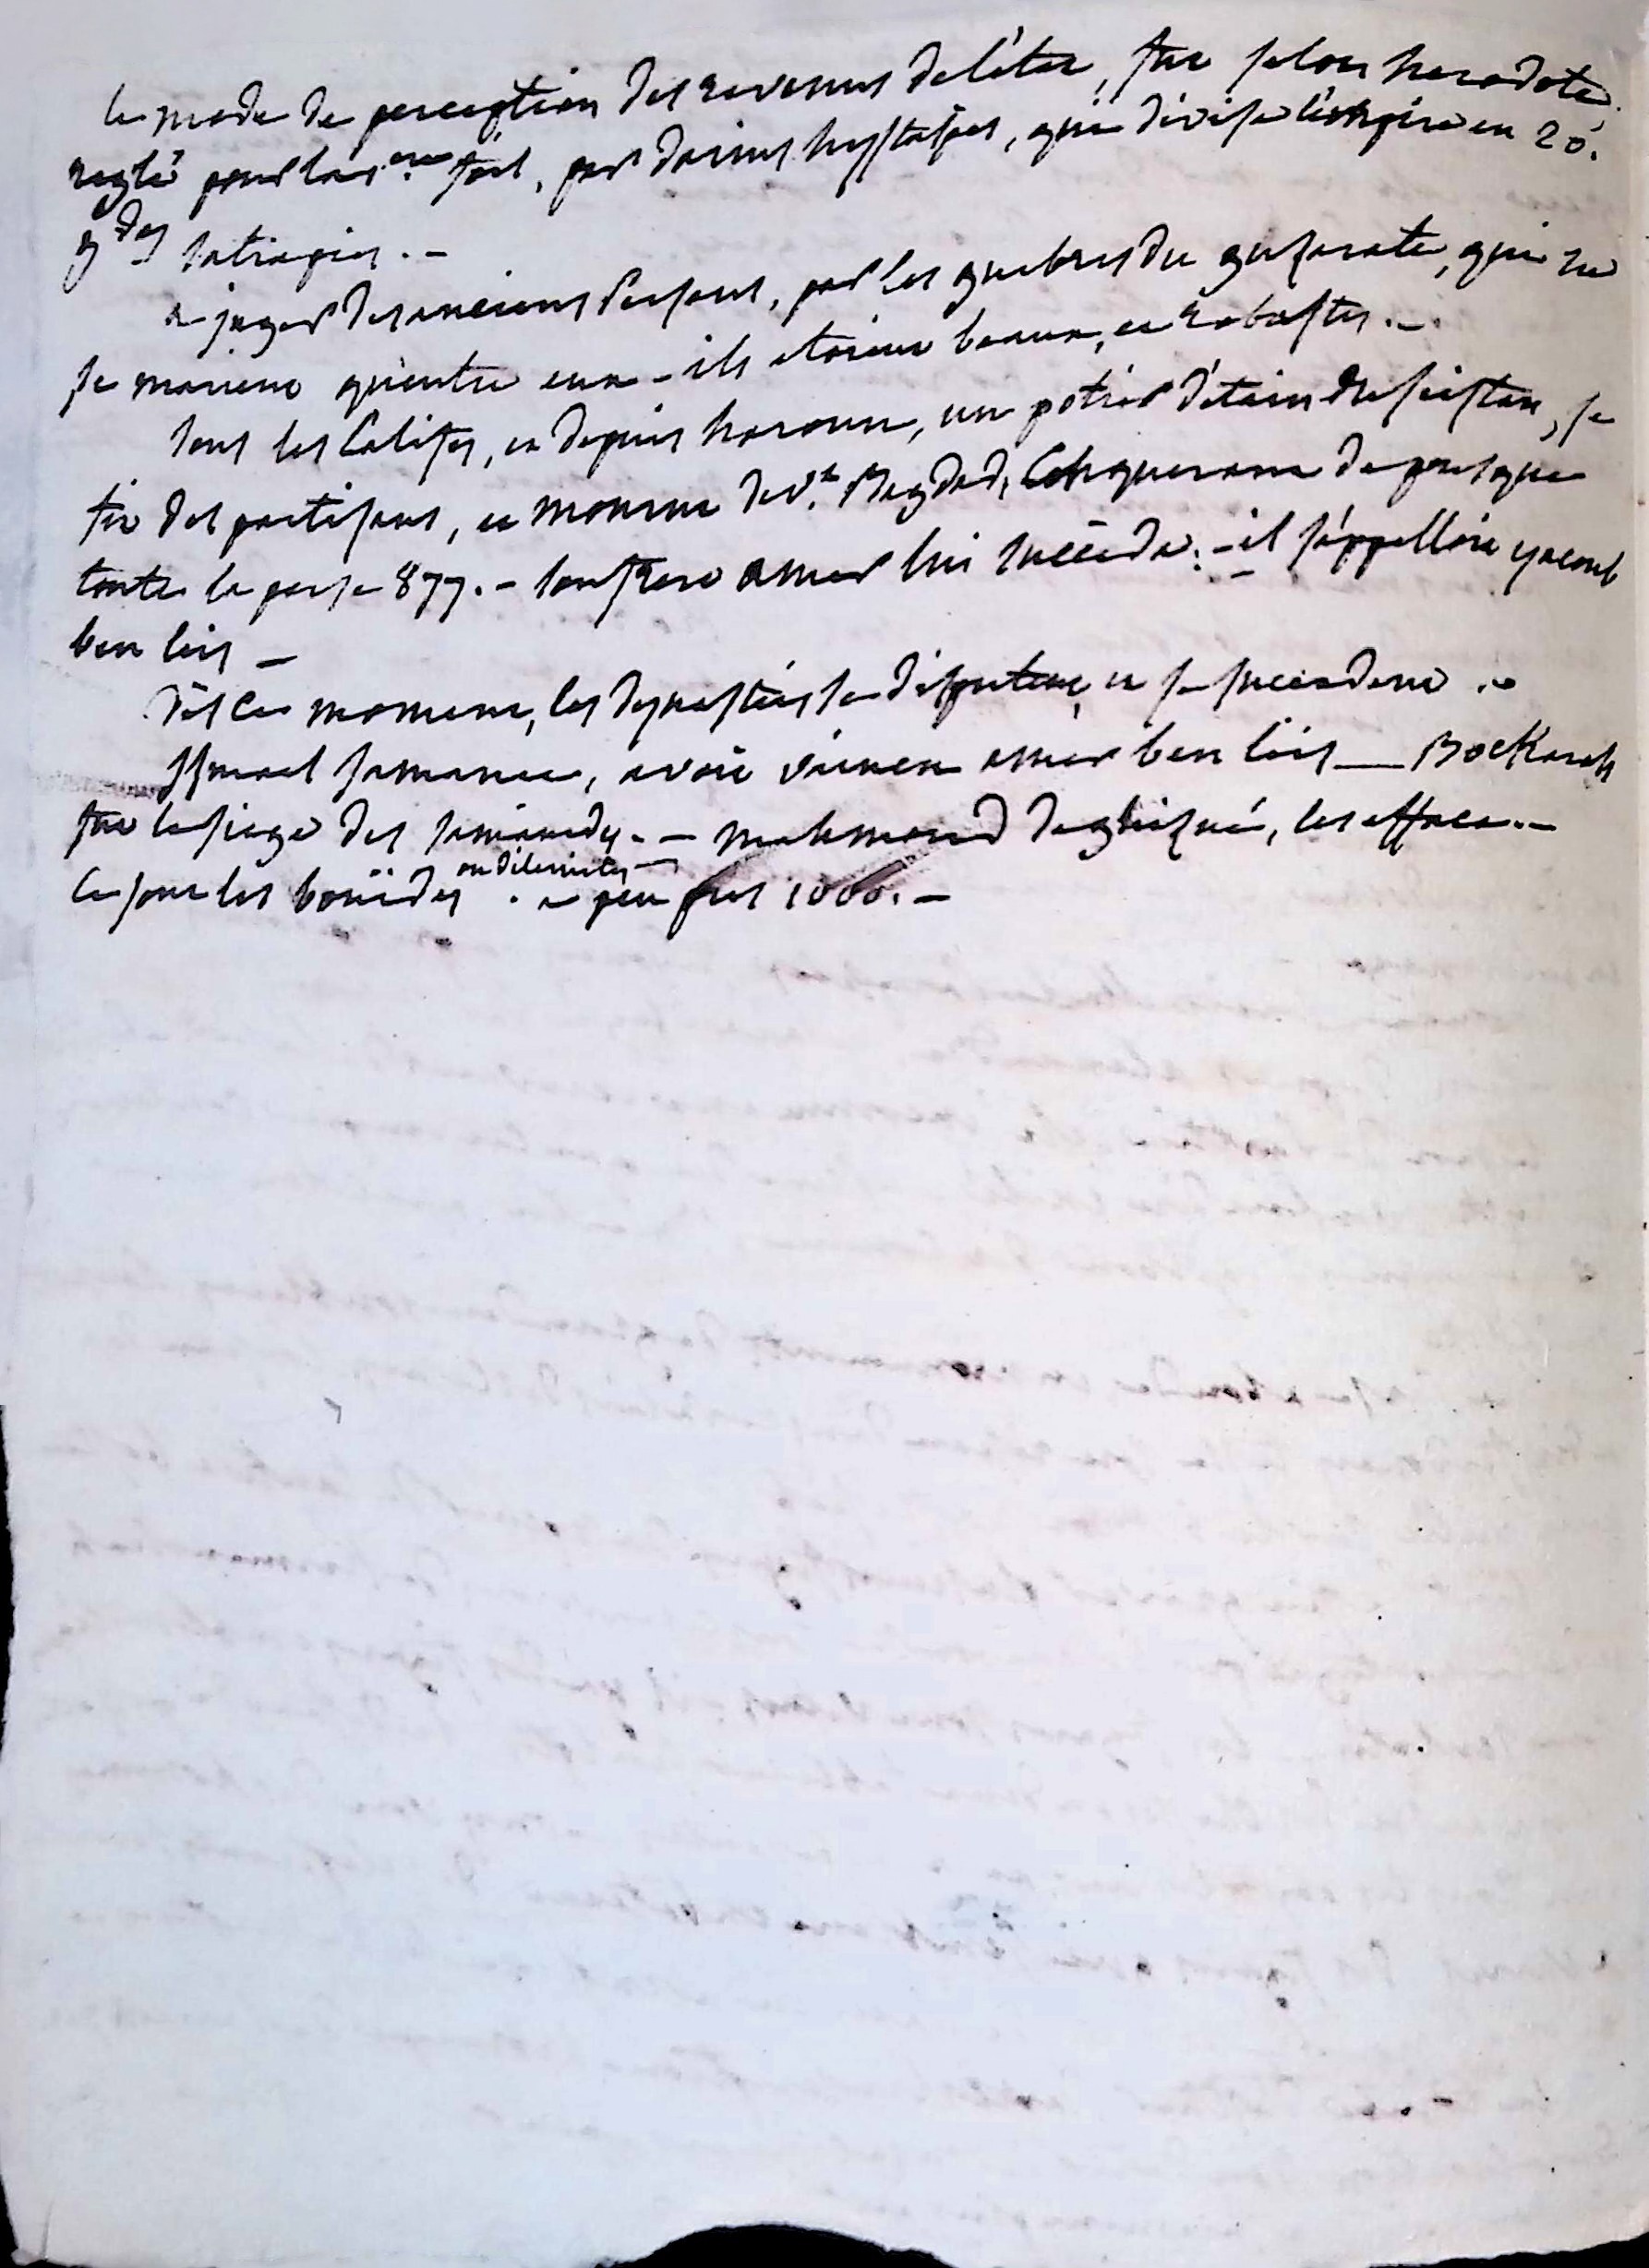 le mode de perception des revenus de l'état, fut selon herodote,
reglé pour la 1.ere fois, par darius hystaspes, qui divisa l'empire en 20.
g.des satrapies. -
a juger des anciens Persans, par les guebres du guzarate, qui ne
se marient qu'entre eux - ils etoient beaux, et robustes. -
sous les Califes, et depuis haroun, un potier d'étain du seistan, se
fit des partisans, et mourut dev.t Bagdad, Conquerant de presque
toute la perse 877. - son frere amer lui succéda. - il s'appelloit yacoub
ben leis -
dès ce moment, les dynasties se disputent, et se succedent
Ismael samanée, avoit vaincu amer ben leis — Bockarah
fut le siege des samanides. - mahmoud de ghizné, les effaca. -
ce sont les bouides ou dilemites - a peu près 1000. -